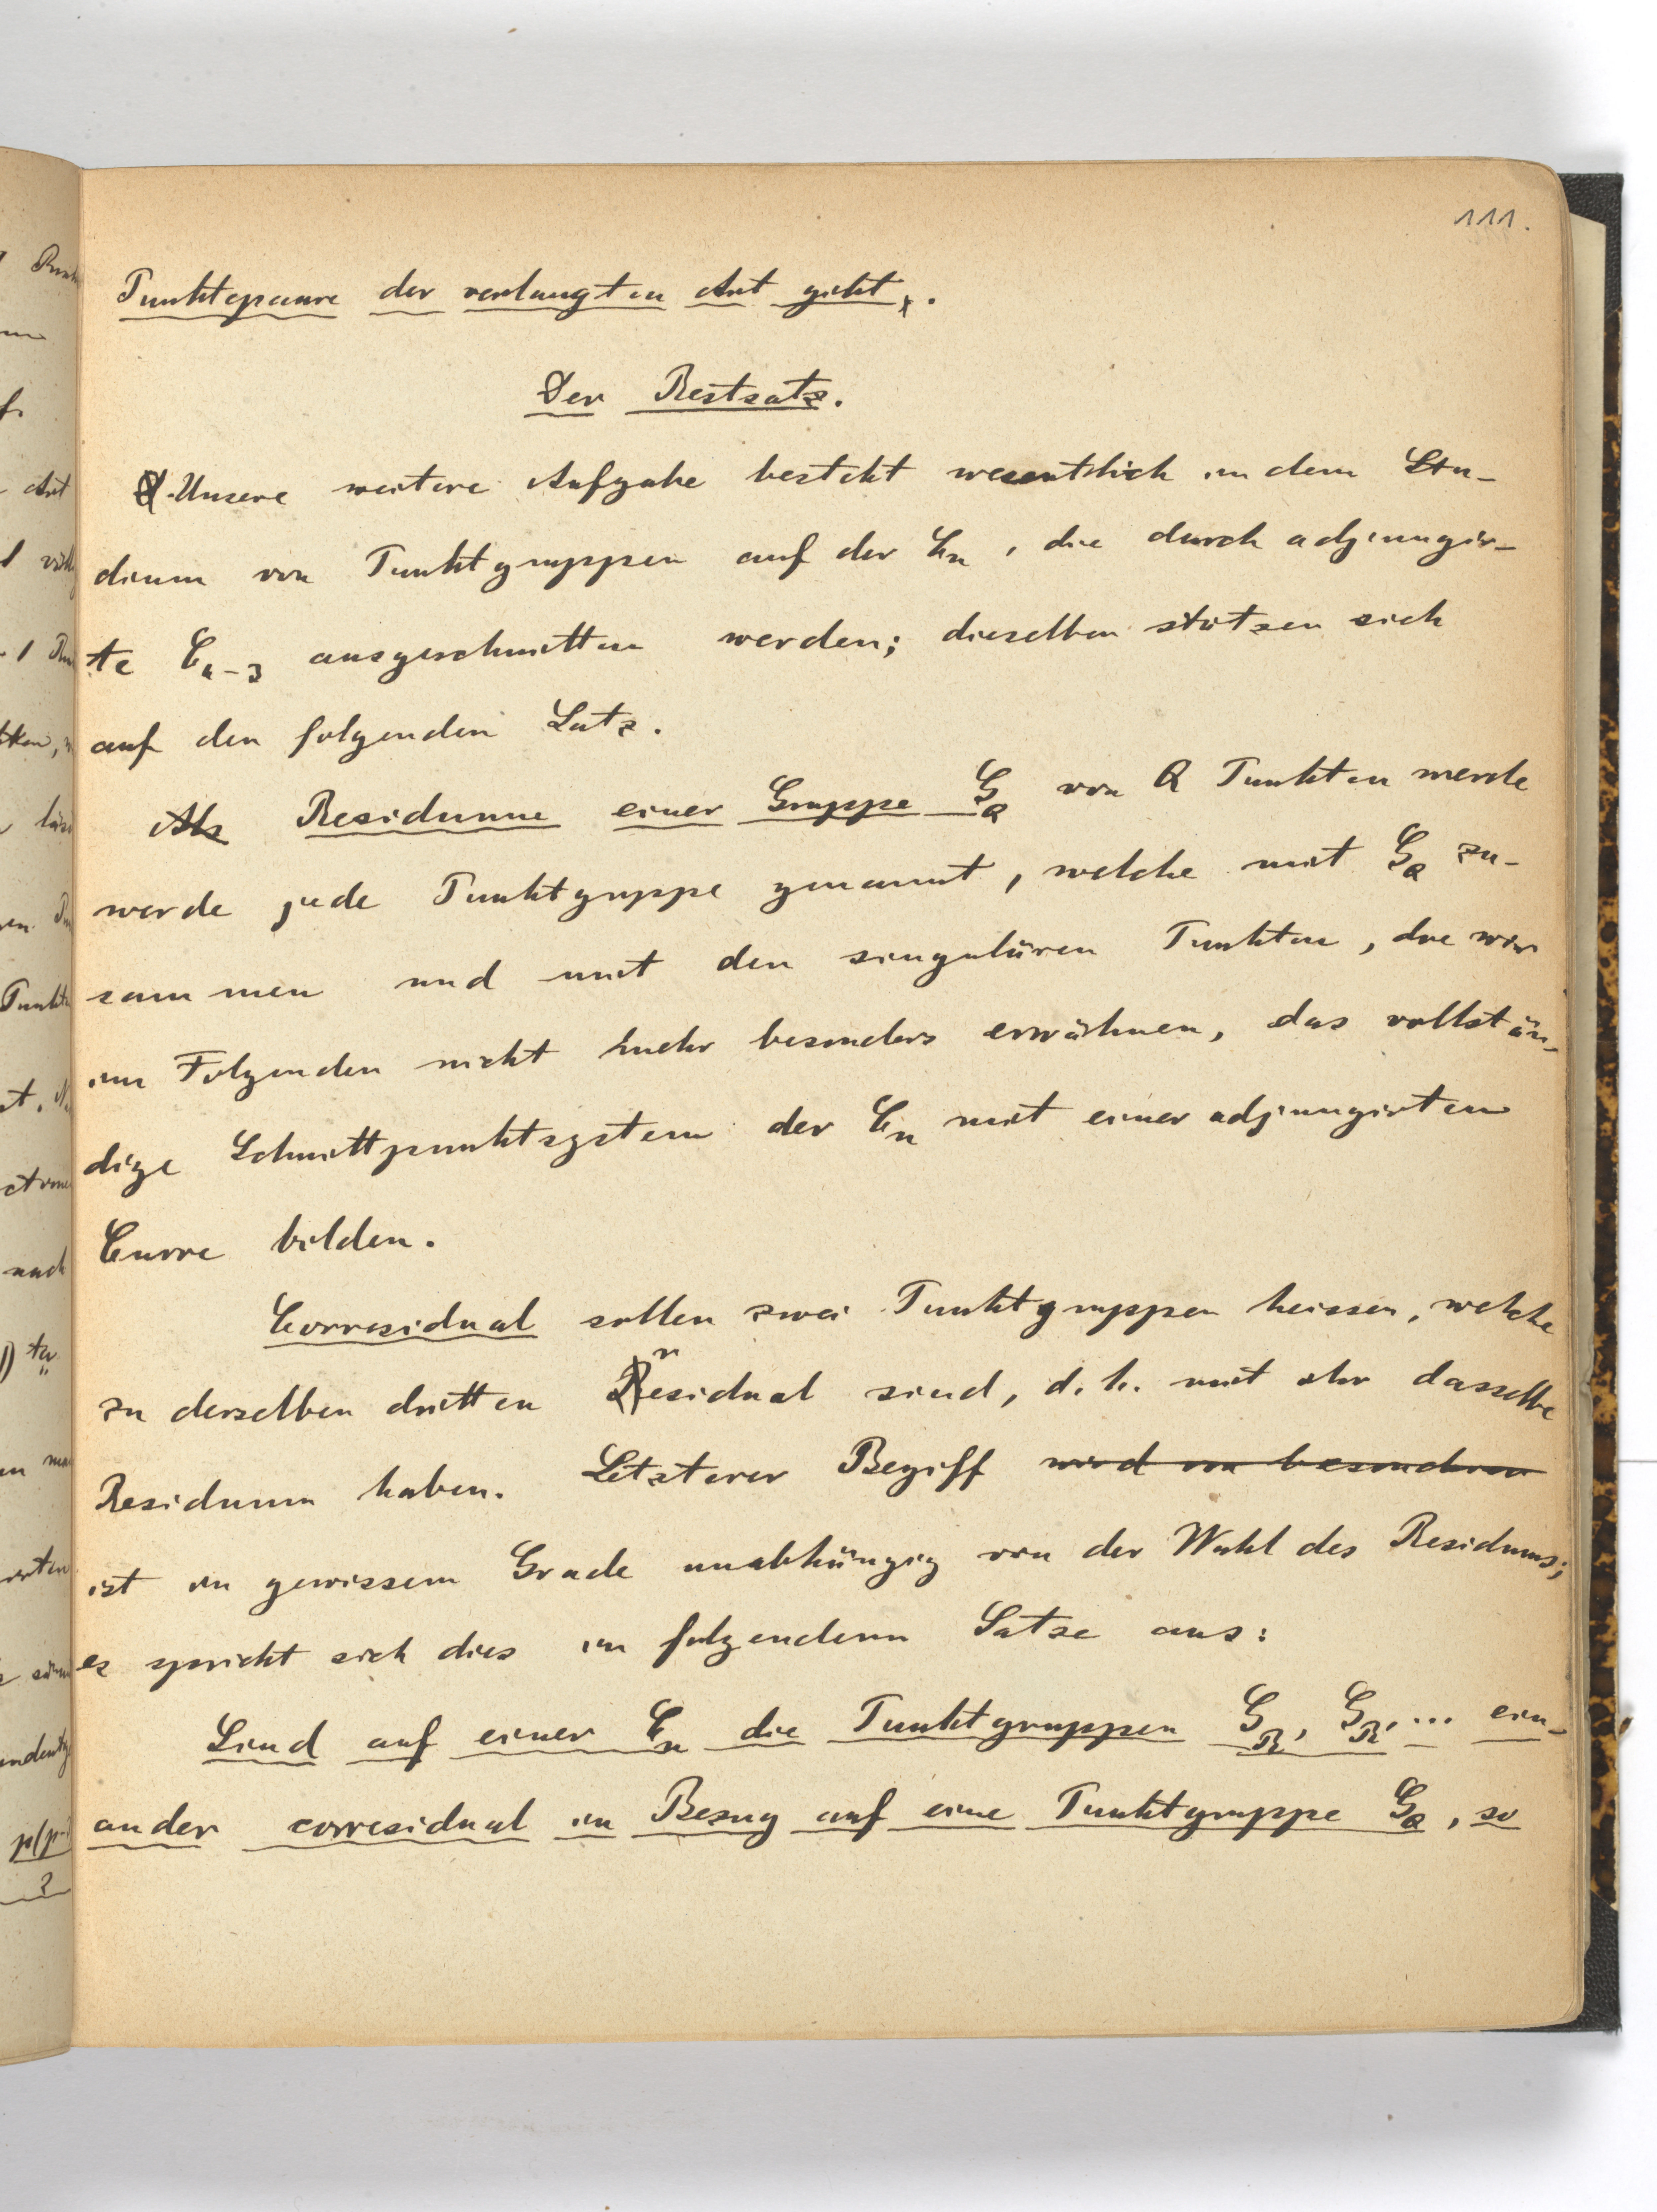 111.
Punktepaare der verlangten Art giebt.
Der Restsatz.
Unsere weitere Aufgabe besteht wesentlich in dem Stu-
dium von Punktgruppen auf der C_n, die durch adjungir-
te C_{n-3} ausgeschnitten werden; dieselben stützen sich
auf den folgenden Satz.
Als Residuum einer Gruppe G_Q von Q Punkten werde
werde jede Punktgruppe genannt, welche mit G_Q zu-
sammen und mit den singulären Punkten, die wir
im Folgenden nicht mehr besonders erwähnen, das vollstän-
dige Schnittpunktsystem der C_n mit einer adjungirten
Curve bilden.
Corresidual sollen zwei Punktgruppen heissen, welche
zu derselben dritten Residual sind, d.h. mit ihr dasselbe
Residuum haben. Letzterer Begriff wird im besonderen
ist in gewissem Grade unabhängig von der Wahl des Residuums;
es spricht sich dies in folgendem Satze aus:
Sind auf einer C_n die Punktgruppen G_R, G_R', ... ein-
ander corresidual in Bezug auf eine Punktgruppe G_Q, so